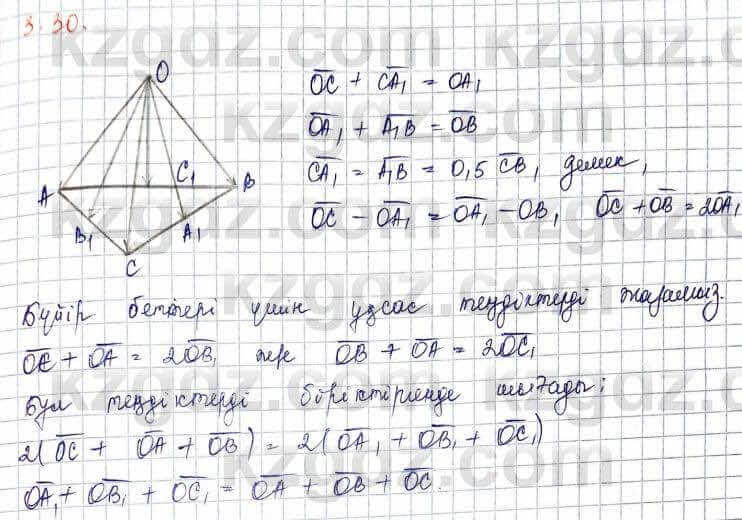 3.30.
O
A
C₁
B
B₁
A₁
C
O̅C̅ + C̅A̅₁ = OA₁
O̅A̅₁ + A̅₁B̅ = O̅B̅
C̅A̅₁ = A̅₁B̅ = 0,5 C̅B̅, демек,
O̅C̅ - O̅A̅₁ = O̅A̅₁ - OB, O̅C̅ + O̅B̅ = 2O̅A̅₁
Бүйір беттері үшін ұқсас теңдіктерді жазамыз.
O̅C̅ + O̅A̅ = 2O̅B̅₁ және O̅B̅ + O̅A̅ = 2O̅C̅₁
Бұл теңдіктерді біріктіргенде шығады:
2(O̅C̅ + O̅A̅ + O̅B̅) = 2(O̅A̅₁ + O̅B̅₁ + O̅C̅₁)
O̅A̅₁ + O̅B̅₁ + O̅C̅₁ = O̅A̅ + O̅B̅ + O̅C̅.
kzgdz.com